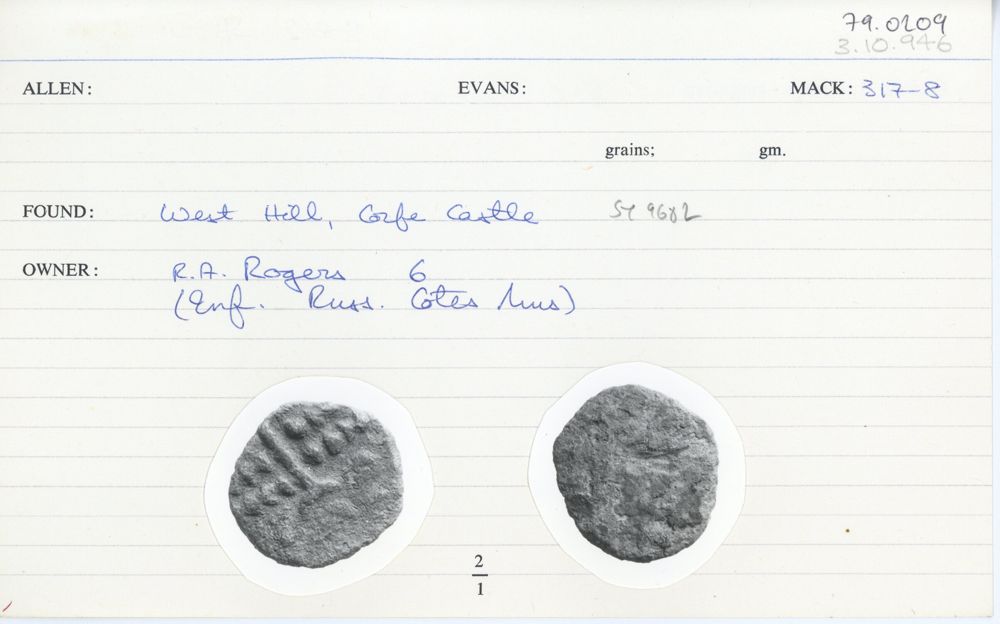 79.0209
3.10.946
ALLEN: EVANS: MACK: 317-8
grains; gm.
FOUND: West Hill, Corfe Castle SY 9682
OWNER: R.A. Rogers 6
(Enf. Russ. Cotes Mus)
2
1